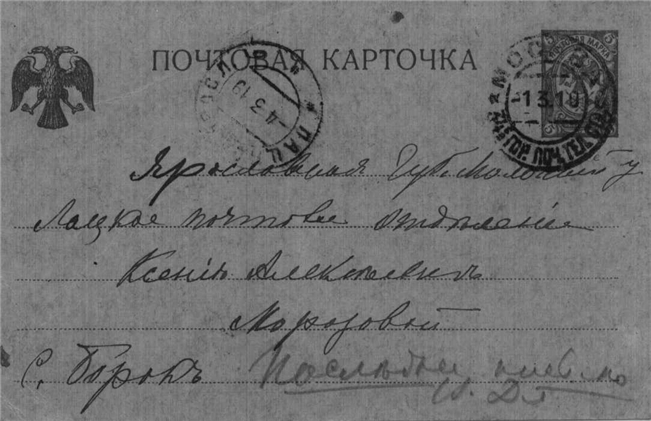 ПОЧТОВАЯ КАРТОЧКА
МОСКВА
-1.3.19
ЯРОСЛ
4 3 19
Ярославская Губ. Мологский у
Лацкое почтовое отдѣленіе
Ксеніи Алексѣевнѣ
Морозовой
С. Борокъ